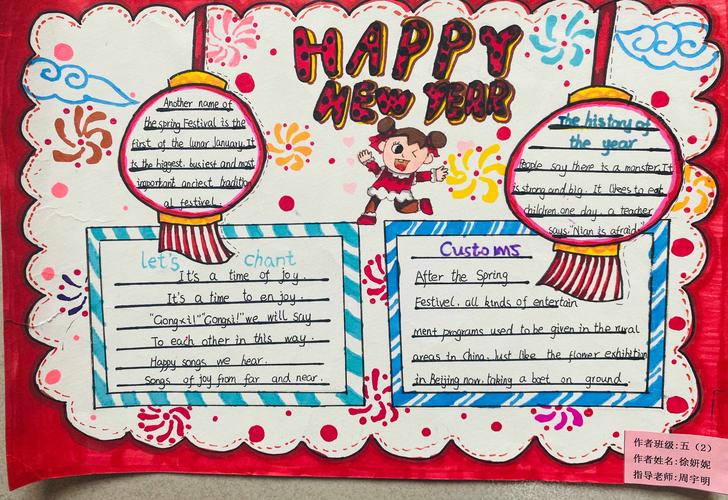 HAPPY
NEW YEAR
Another name of
the spring Festival is the
first of the lunar January. It
is the biggest. busiest and most
important ancient traditio
al festivel.
The history of
the year
People say there is a monster. It
is strong and big. It likes to eat
children one day. a teacher
says. "Nian is afraid
let's chant
It's a time of joy.
It's a time to enjoy.
"Gongxi!" "Gongxi!" we will say
To each other in this way.
Happy songs we hear.
Songs of joy from far and near.
Customs
After the Spring
Festivel. all kinds of entertain
ment programs used to be given in the rural
areas in China. Just like the flower exhibition
in Beijing now. taking a boet on ground.
作者班级:五（2）
作者姓名:徐妍妮
指导老师:周宇明